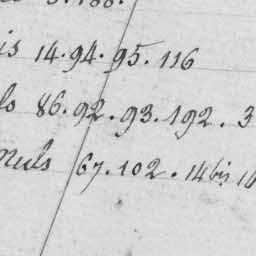 3.188.
is 14.94.95.116
86.92.93.192.3
67.102.14bis